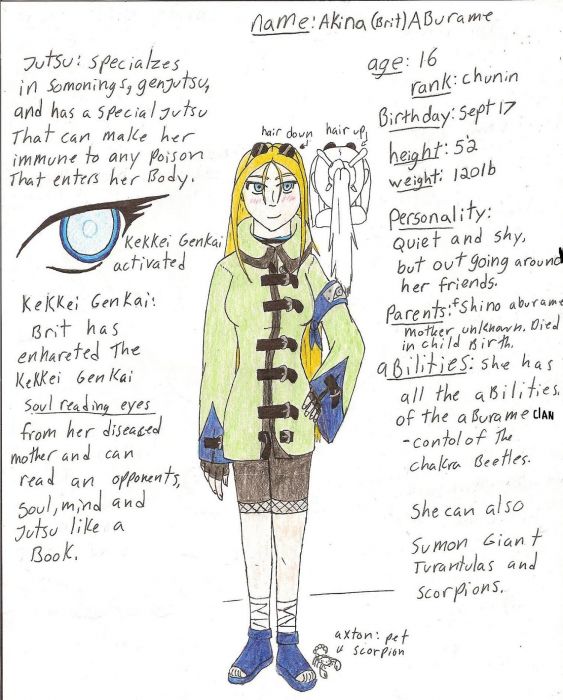 name: Akina (Brit) ABurame
Jutsu: specialzes
in somonings, genjutsu,
and has a special jutsu
That can make her
immune to any Poison
That enters her Body.
Kekkei Genkai
activated
Kekkei Genkai:
Brit has
enhareted The
Kekkei Genkai
Soul reading eyes
from her diseaced
mother and can
read an opponents,
Soul, mind and
Jutsu like a
Book.
hair down
hair up
age: 16
rank: chunin
Birthday: Sept 17
height: 5'2
weight: 120lb
Personality:
Quiet and shy,
but out going around
her friends.
Parents: f Shino aburame
mother, unknown. Died
in child Birth.
aBilities: she has
all the aBilities.
of the aBurame clan
-contol of The
chakra Beetles.
She can also
Sumon Giant
Turantulas and
scorpions.
axton: pet
scorpion